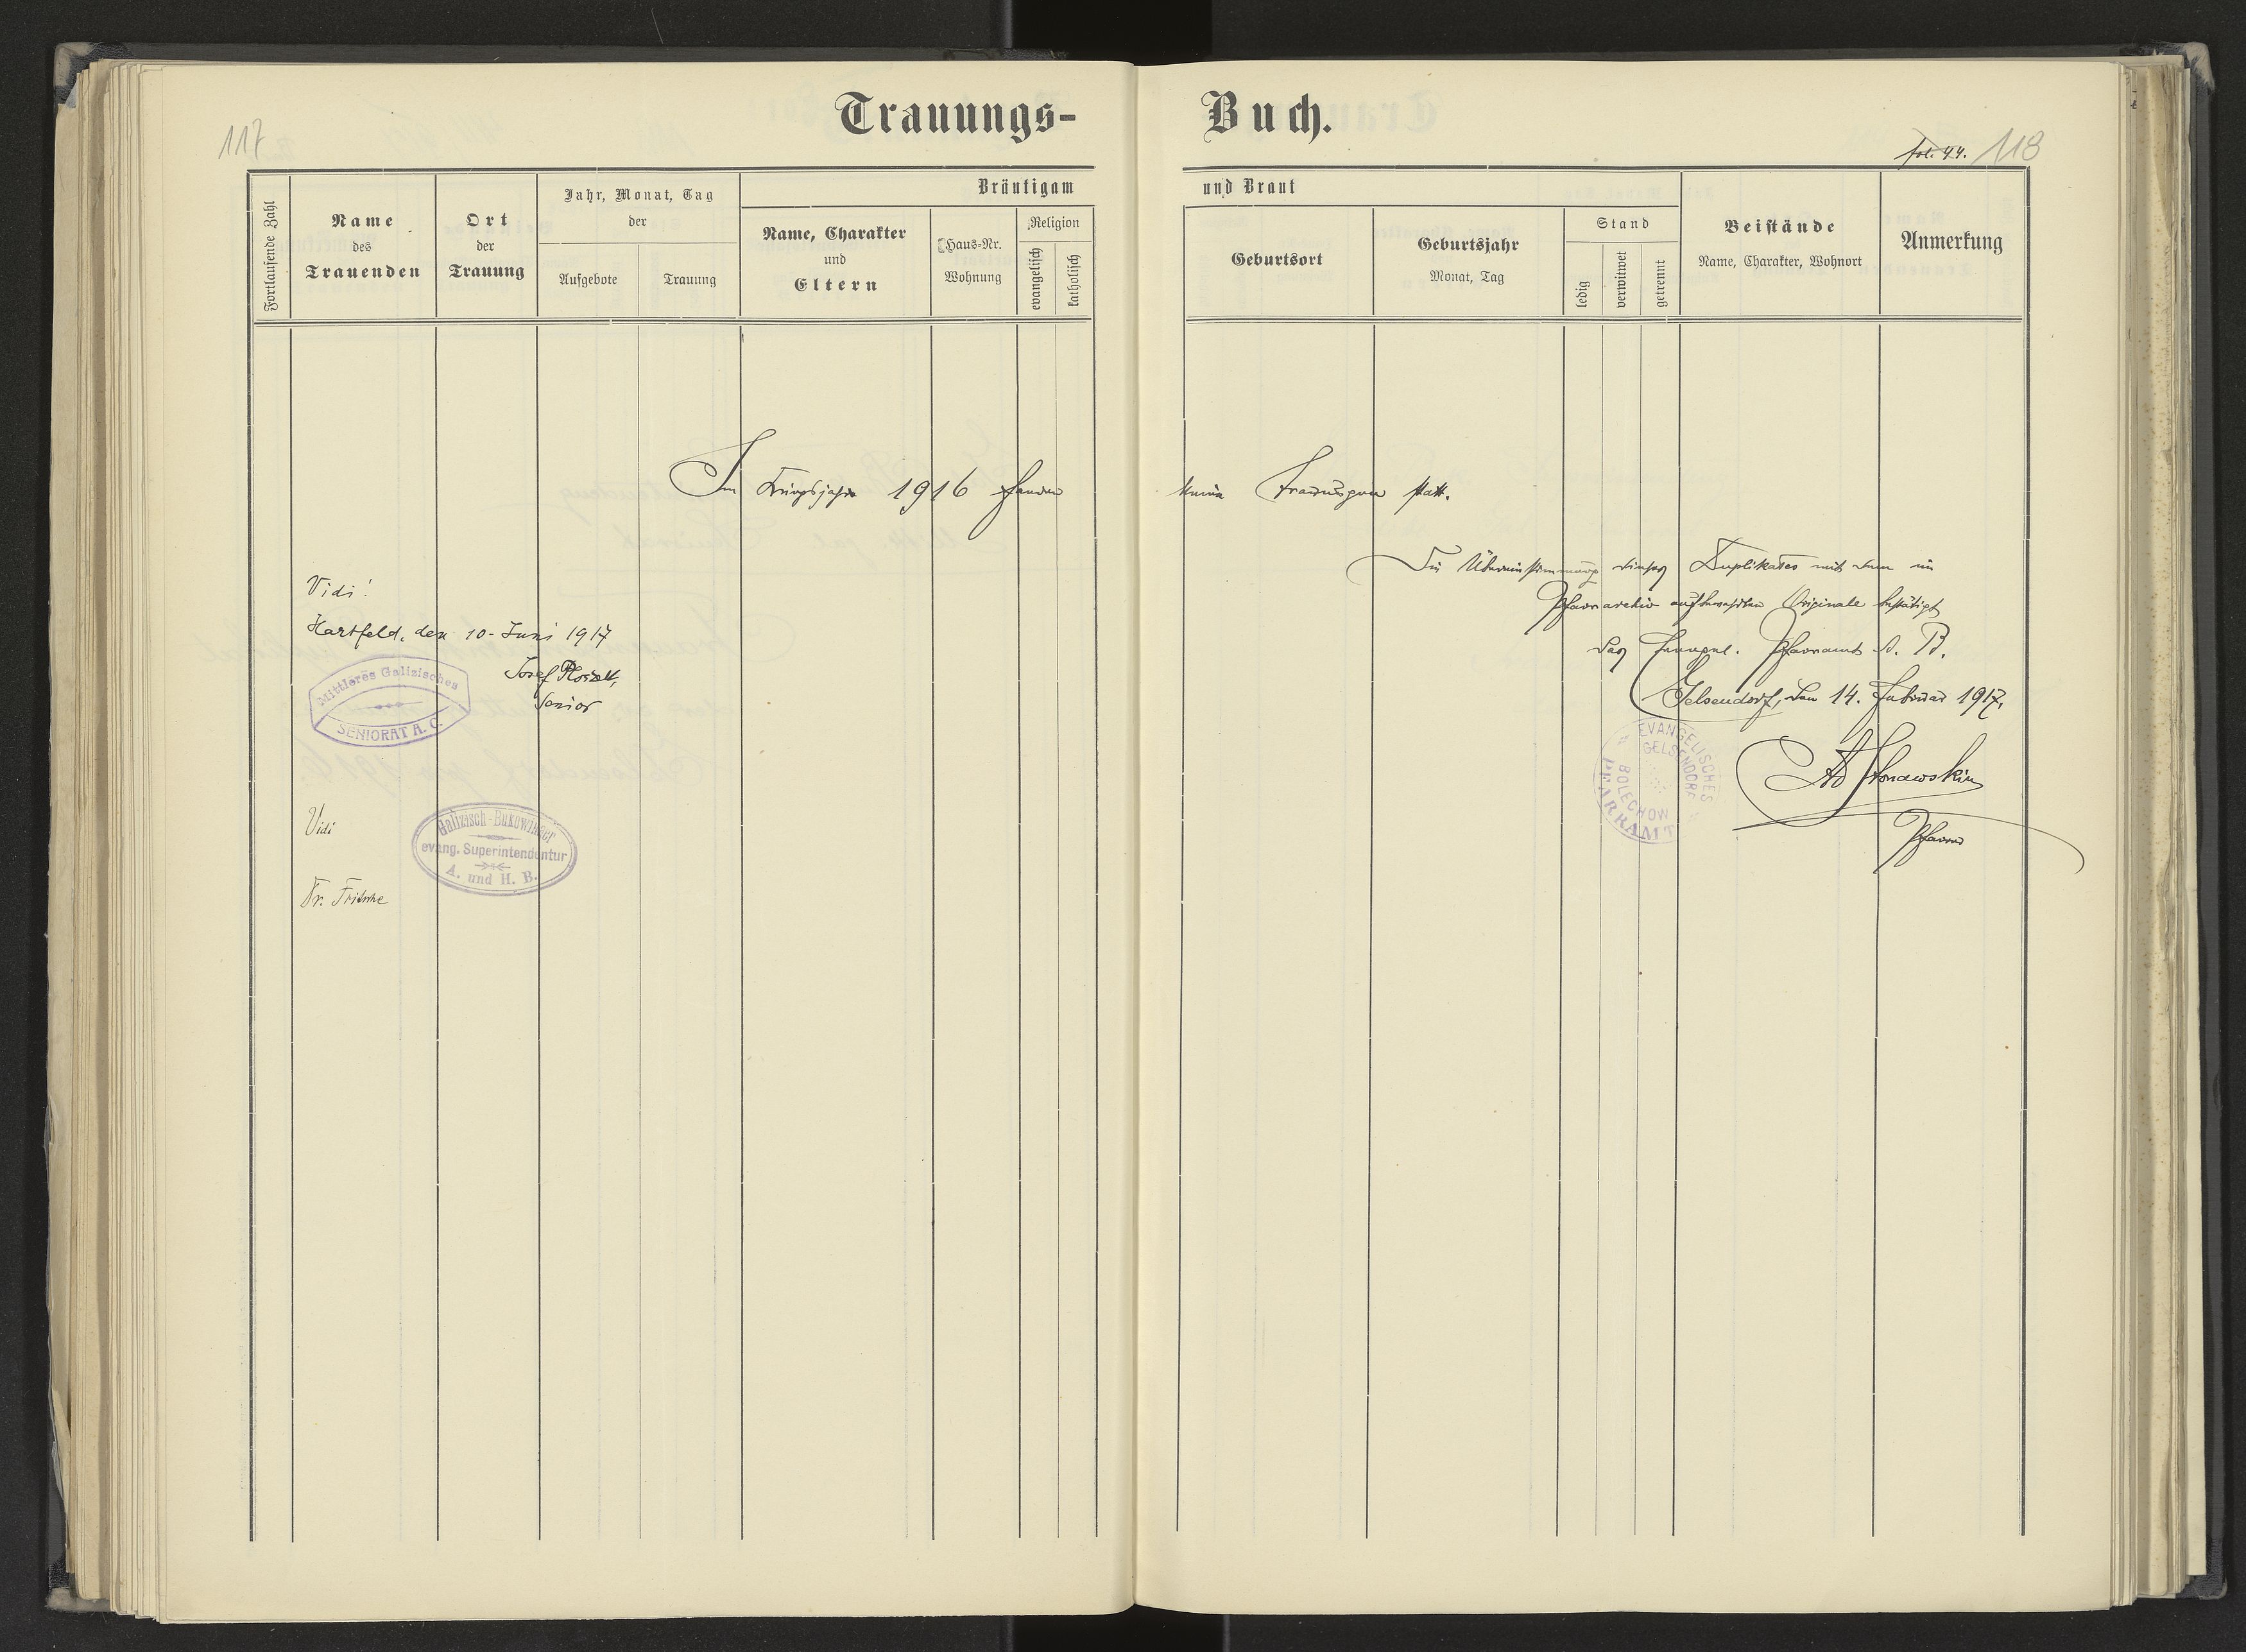 Trauungs-Buch.
117
fol. 44. 118
Fortlaufende Zahl
Name
des
Trauenden
Ort
der
Trauung
Jahr, Monat, Tag
der
Aufgebote
Trauung
Bräutigam und Braut
Name, Charakter
und
Eltern
Haus-Nr.
Wohnung
Religion
evangelisch
katholisch
Geburtsort
Geburtsjahr
Monat, Tag
Stand
ledig
verwitwet
getrennt
Beistände
Name, Charakter, Wohnort
Anmerkung
Im Kriegsjahre 1916 fanden keine Trauungen statt.
Vidi!
Hartfeld, den 10. Juni 1917
Josef
Senior
Mittleres Galizisches
SENIORAT A. C.
Vidi
Galizisch-Bukowinaer
evang. Superintendentur
A. und H. B.
Fr. Fritsche
Die Übereinstimmung dieses Duplikates mit dem im
Pfarrarchiv aufbewahrten Originale bestätigt
das evangel. Pfarramt A. B.
Gelsendorf, den 14. Februar 1917.
EVANGELISCHES
PFARRAMT
GELSENDORF
BOLECHOW
Pfarrer